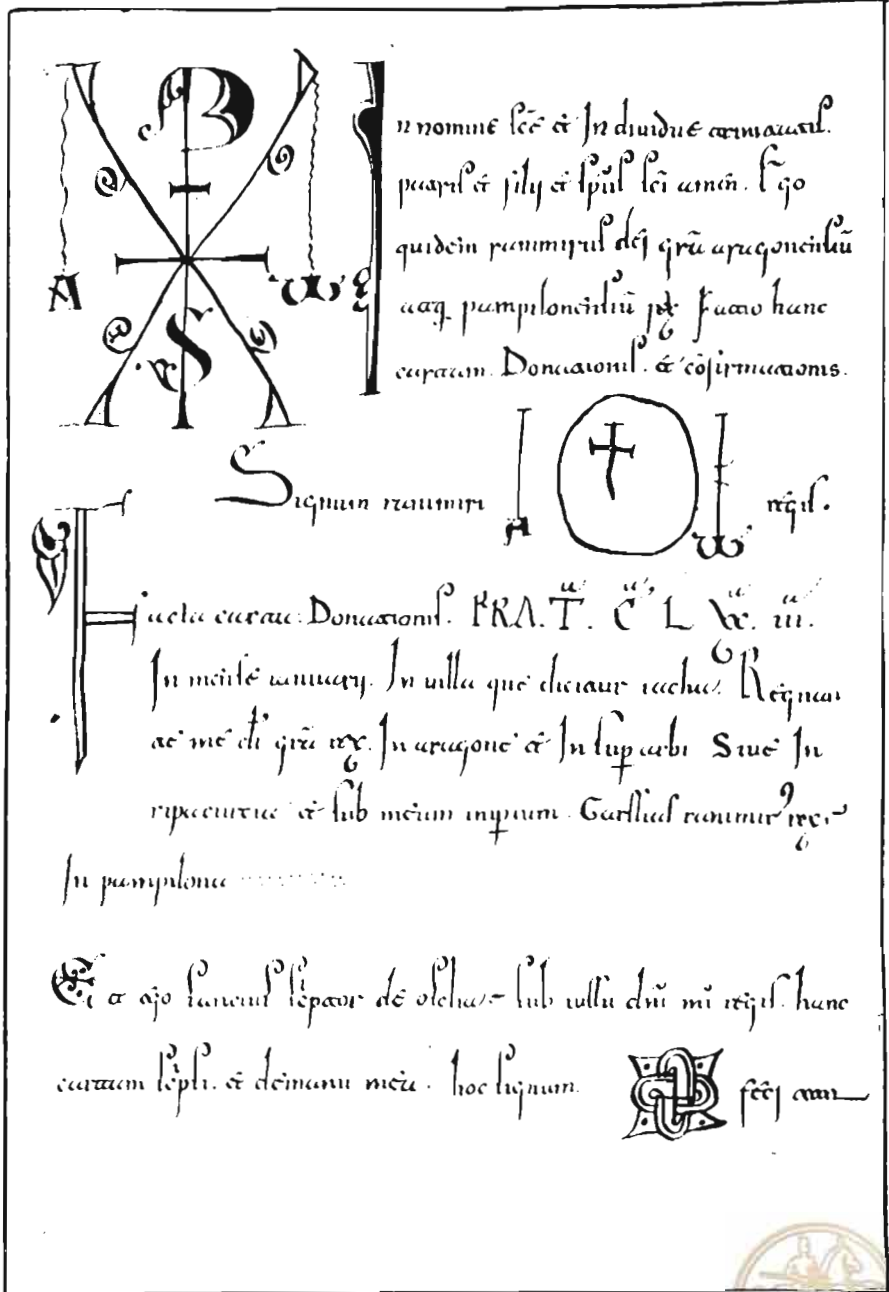 In nomine sc̄e et Indiuidue trinitatis.
patris et filij et sp̄us sc̄i amen. Ego
quidem ranimirus dei gr̄a aragonensiū
atq pampilonensiū rex facio hanc
cartam. Donationis. et cōfirmationis.
Signum ranimiri regis.
Facta carta Donationis. ERA. T. C. L xx. iii.
In mense ianuarij. In uilla que dicitur iacha. Regnan
te me di gr̄a rex. In aragone et In suprarbi Siue In
ripacurtia et sub meum inperium. Garsias ranimir rex
In pampilona
Et ego sancius scriptor de sub iussu dn̄i mī regis. hanc
cartam scripsi. et de manu mea. hoc signum. feci